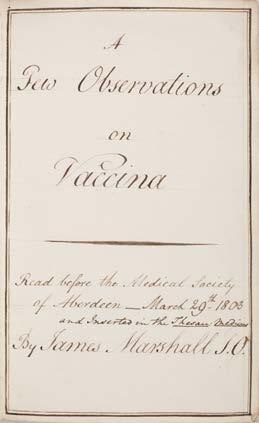 A
Few Observations
on
Vaccina
Read before the Medical Society
of Aberdeen — March 29th. 1803
and Inserted in the Thesau. Medicus
By James Marshall S.O.